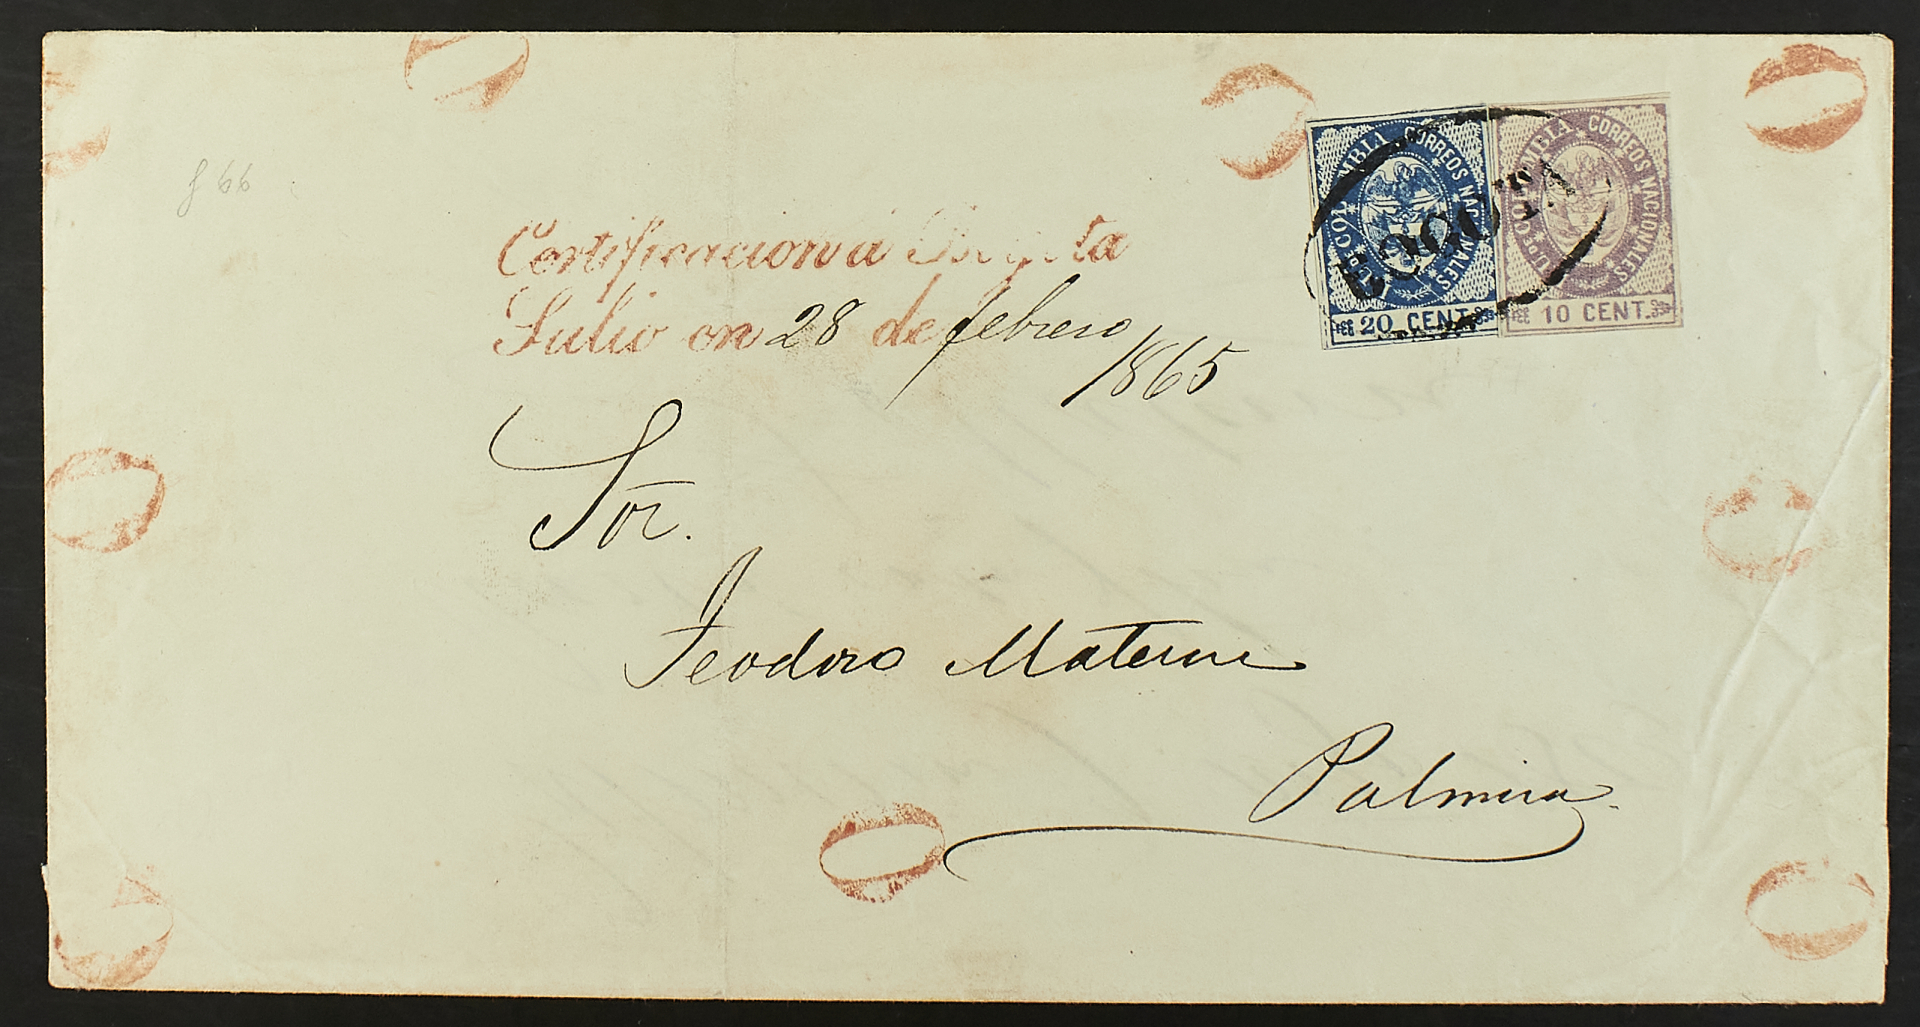 f 66
Certificacion a Bogota
Salio en 28 de febrero
1865
E.E.U.U. DE COLOMBIA CORREOS NACIONALES
20 CENT.
E.E.U.U. DE COLOMBIA CORREOS NACIONALES
10 CENT.
BOGOTA
Sor.
Teodoro Materon
Palmira